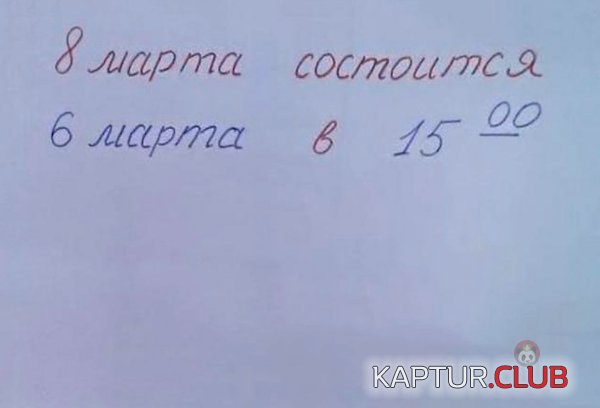 8 марта состоится
6 марта в 15 00
KAPTUR.CLUB